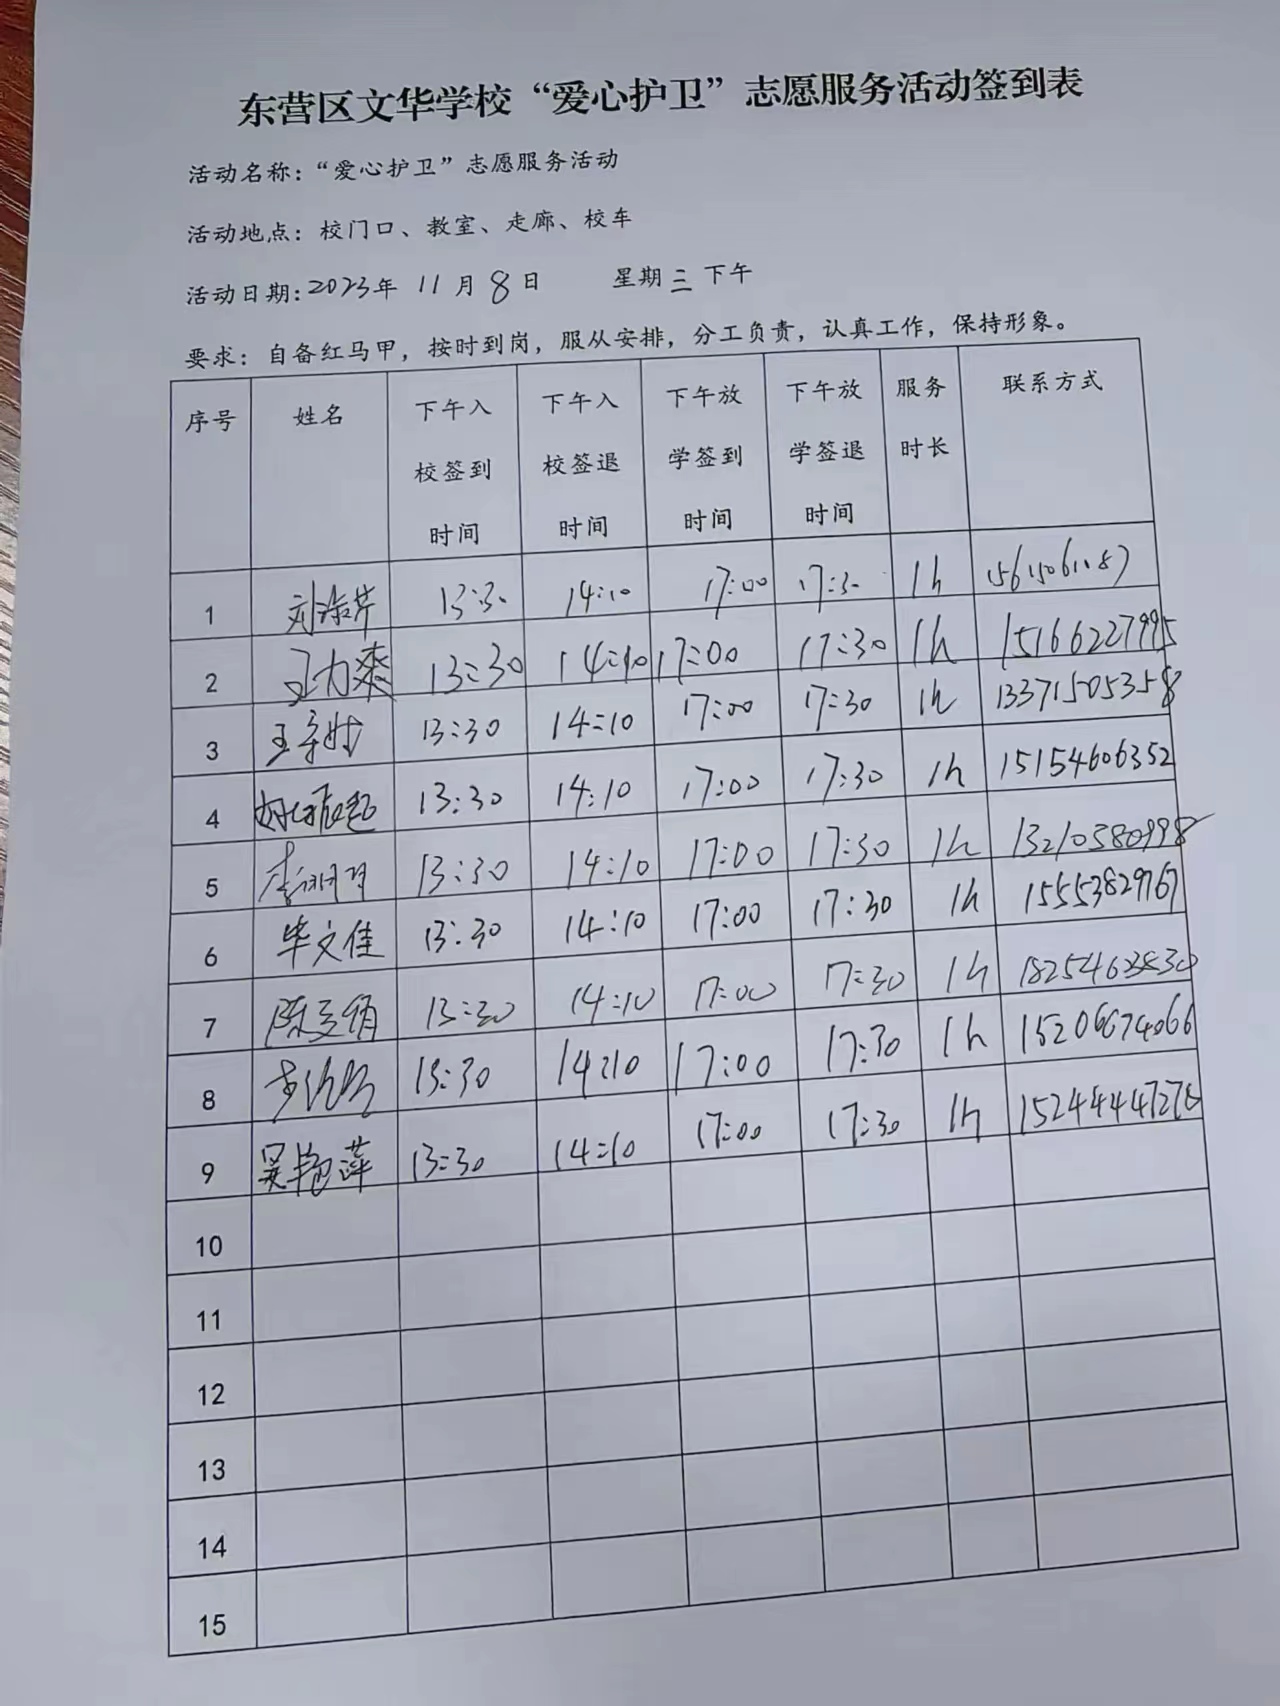 东营区文华学校“爱心护卫”志愿服务活动签到表
活动名称：“爱心护卫”志愿服务活动
活动地点：校门口、教室、走廊、校车
活动日期：2023年 11月 8日 星期三 下午
要求：自备红马甲，按时到岗，服从安排，分工负责，认真工作，保持形象。
序号 姓名 下午入校签到时间 下午入校签退时间 下午放学签到时间 下午放学签退时间 服务时长 联系方式
1 13:30 14:10 17:00 17:30 1h 15615061187
2 王力爽 13:30 14:10 17:00 17:30 1h 15166227995
3 13:30 14:10 17:00 17:30 1h 13371505358
4 13:30 14:10 17:00 17:30 1h 15154606352
5 13:30 14:10 17:00 17:30 1h 13210380998
6 毕文佳 13:30 14:10 17:00 17:30 1h 15553829767
7 13:30 14:10 17:00 17:30 1h
8 13:30 14:10 17:00 17:30 1h 15206674066
9 吴艳萍 13:30 14:10 17:00 17:30 1h
10
11
12
13
14
15